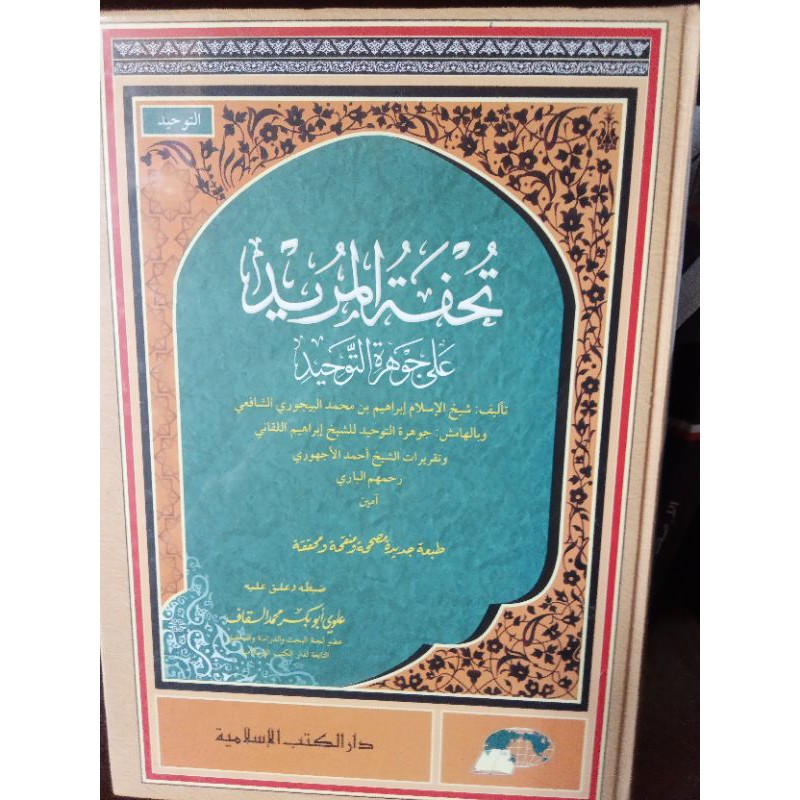 التوحيد
تُحْفَةُ المُرِيد
عَلَى جَوْهَرَةِ التَّوْحِيدِ
تأليف: شيخ الإسلام إبراهيم بن محمد البيجوري الشافعي
وبالهامش: جوهرة التوحيد للشيخ إبراهيم اللقاني
وتقريرات الشيخ أحمد الأجهوري
رحمهم الباري
آمين
طبعة جديدة مصححة ومنقحة ومحققة
ضبطه وعلق عليه
علوي أبو بكر محمد السقاف
عضو لجنة البحث والدراسة
التابعة لدار الكتب الإسلامية
دار الكتب الإسلامية